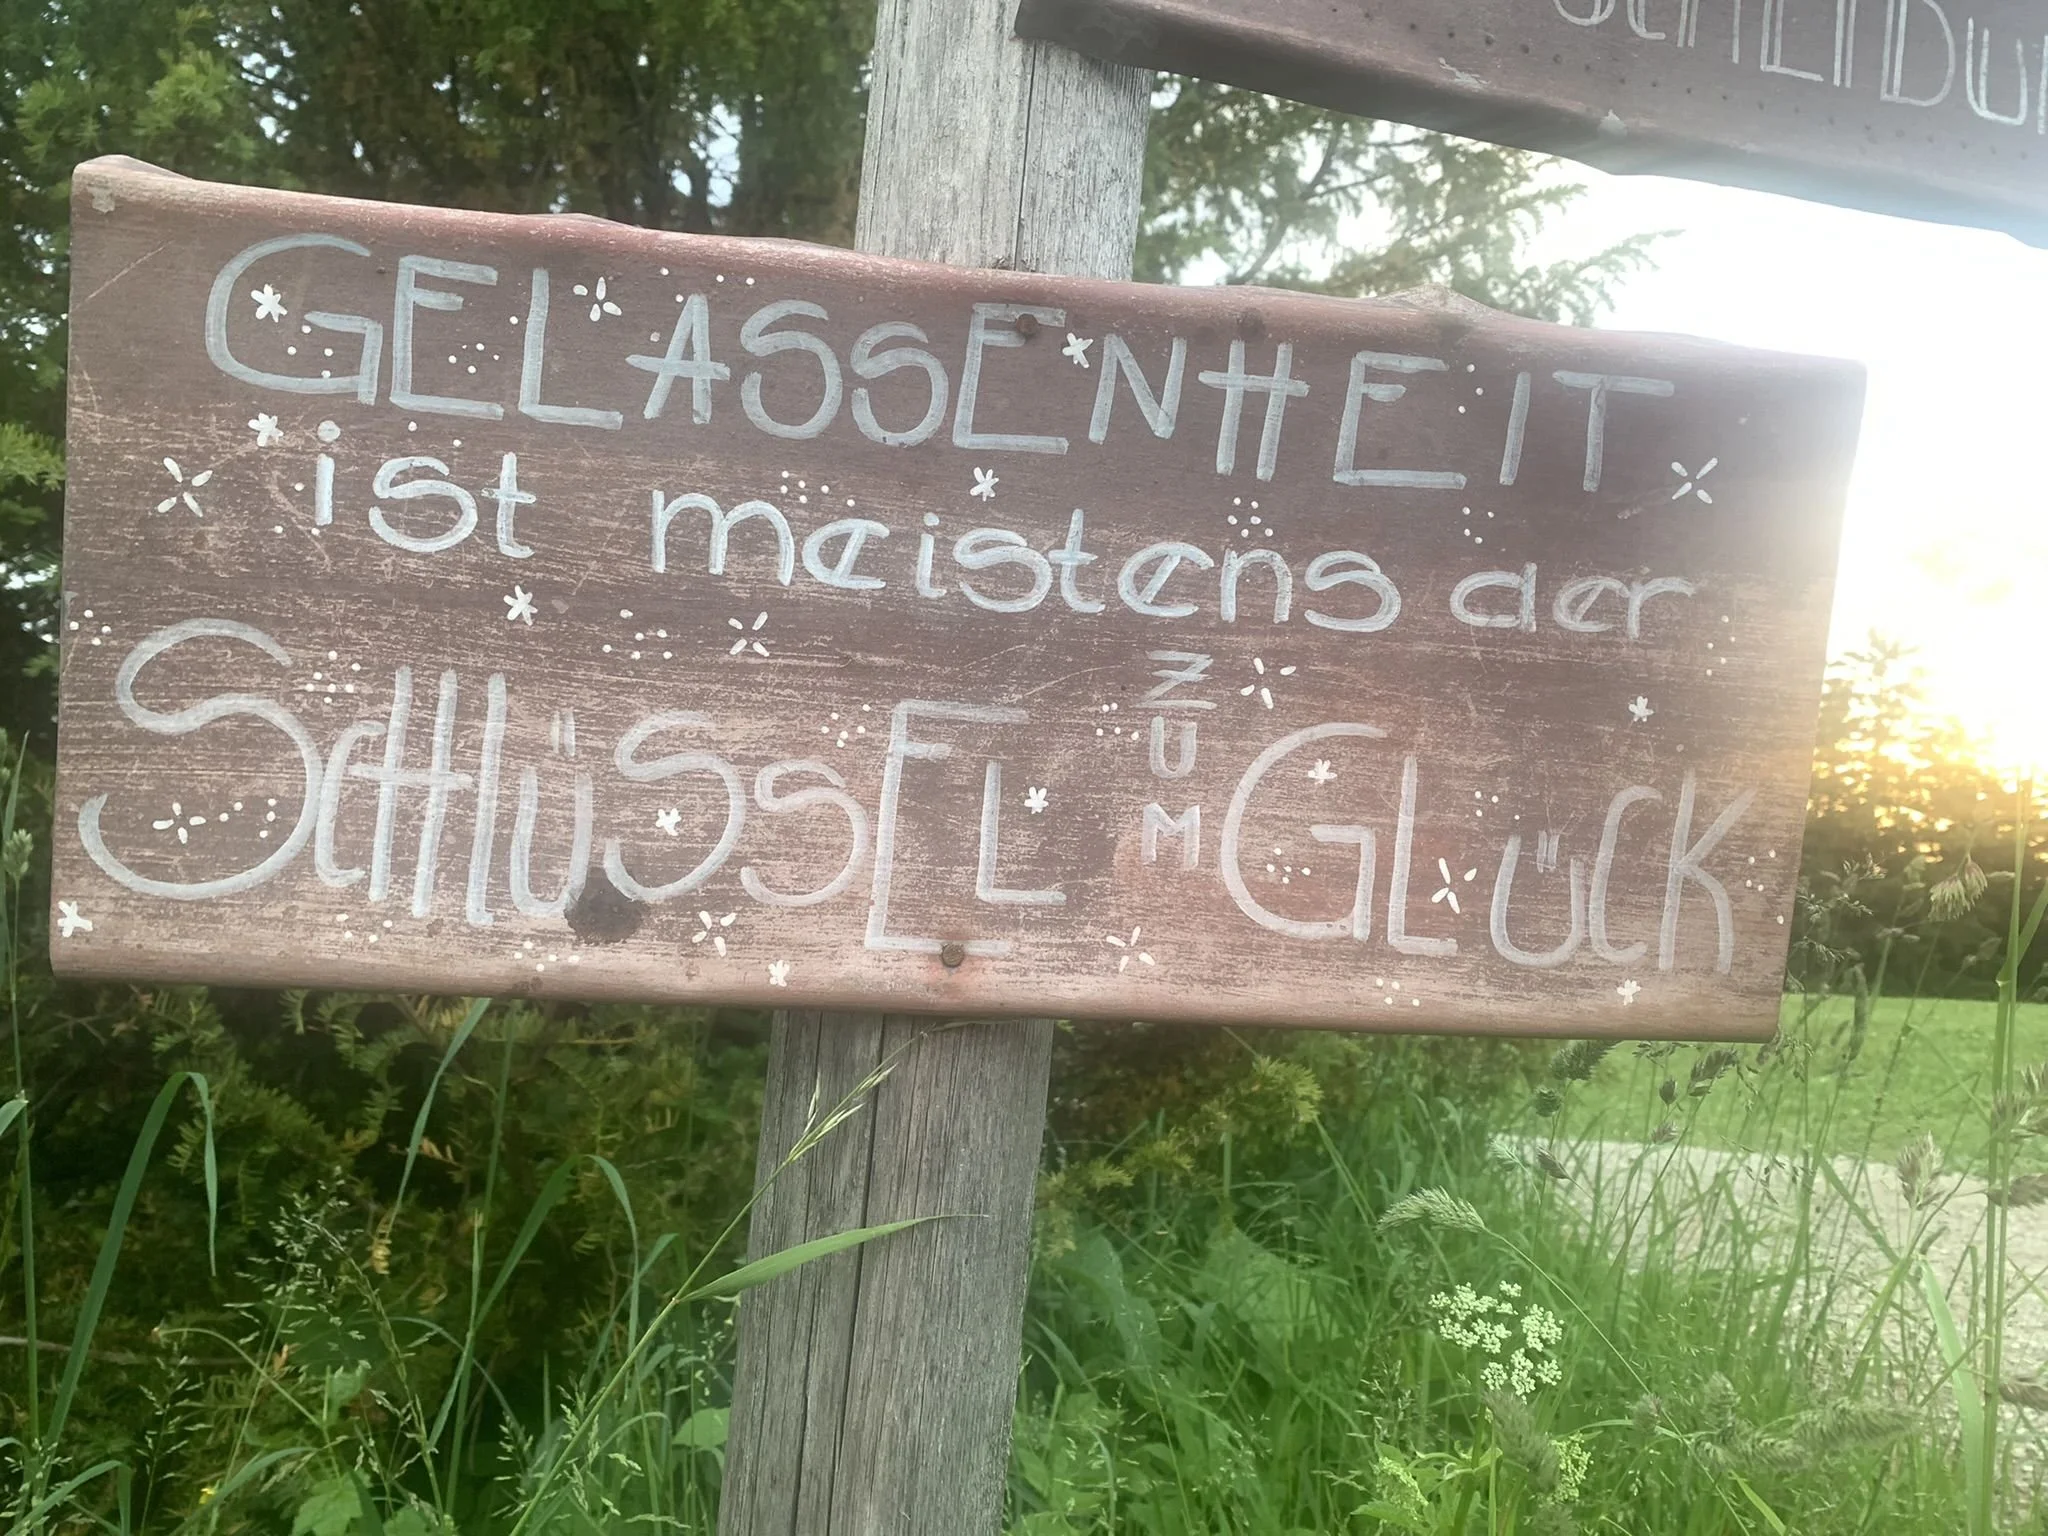 GELASSENHEIT
ist meistens der
SCHLÜSSEL ZUM GLÜCK